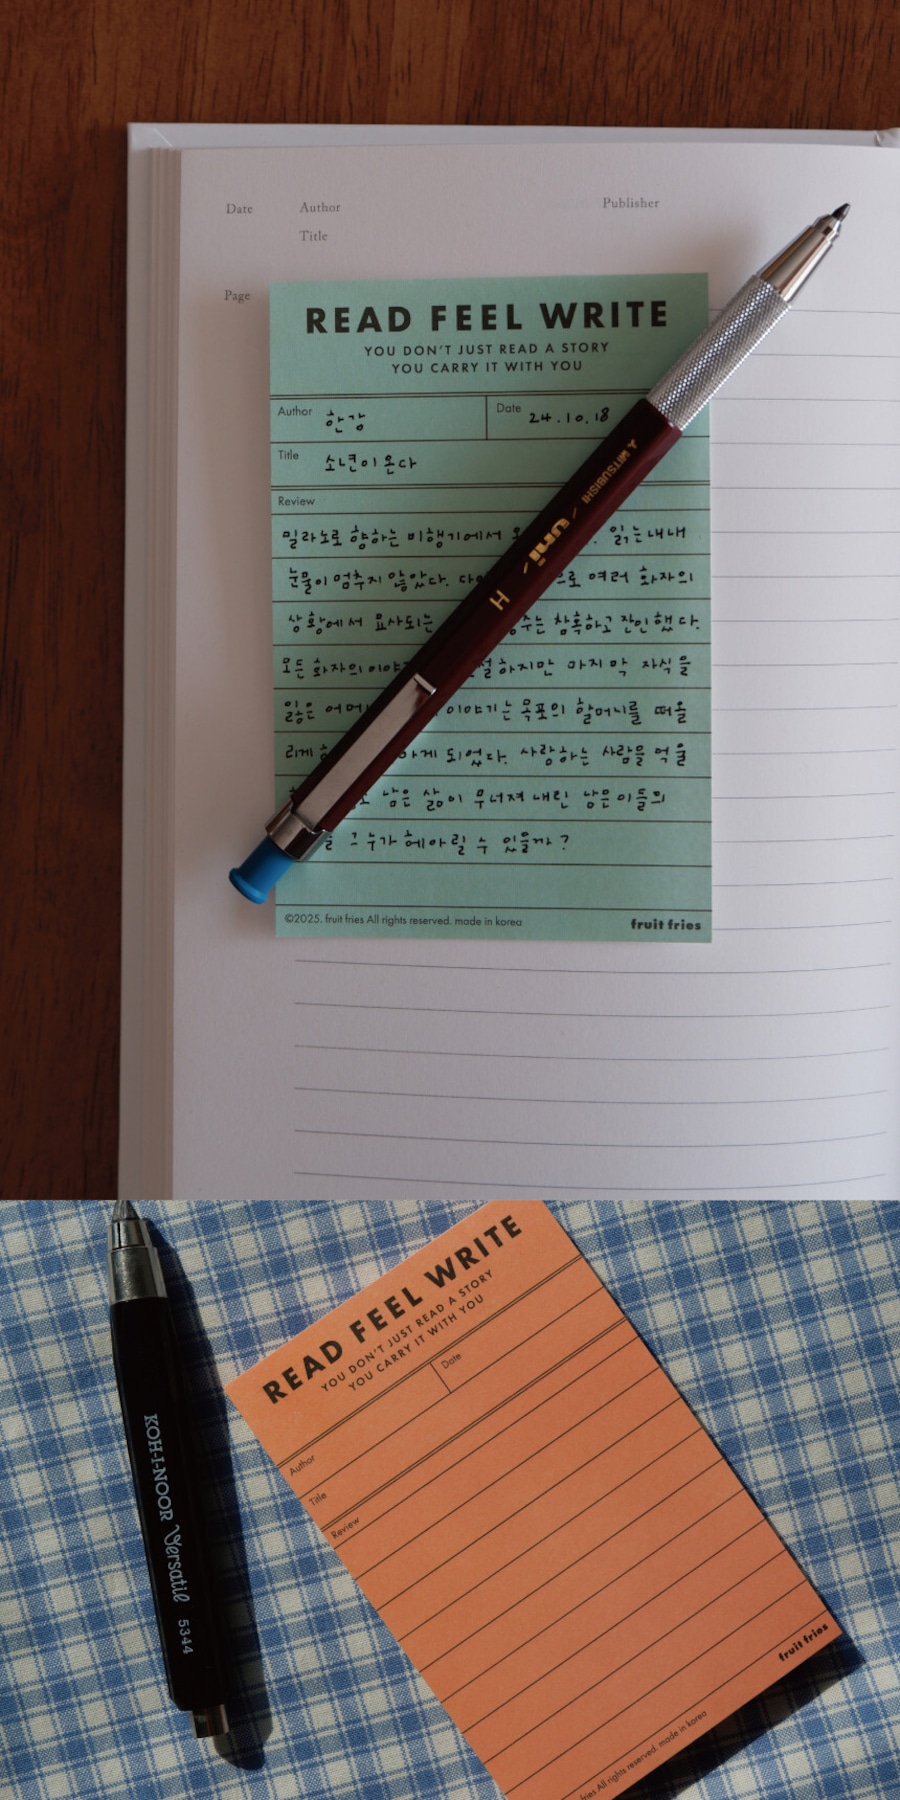 Date Author Publisher
Title
Page
READ FEEL WRITE
YOU DON'T JUST READ A STORY
YOU CARRY IT WITH YOU
Author 한강 Date 24.10.18
Title 소년이 온다
Review
밀라노로 향하는 비행기에서 읽는내내
눈물이 멈추지 않았다. 여러 화자의
상황에서 묘사되는 참혹하고 잔인했다.
모든 화자의 하지만 마지막 자식을
잃은 이야기는 목포의 할머니를 떠올
리게 되었다. 사랑하는 사람을 먹울
남은 삶이 무너져 내린 남은이들의
그 누가 헤아릴 수 있을까?
©2025. fruit fries All rights reserved. made in korea fruit fries
MITSUBISHI uni H
READ FEEL WRITE
YOU DON'T JUST READ A STORY
YOU CARRY IT WITH YOU
Author Date
Title
Review
fries All rights reserved. made in korea fruit fries
KOH-I-NOOR Versatil 5344